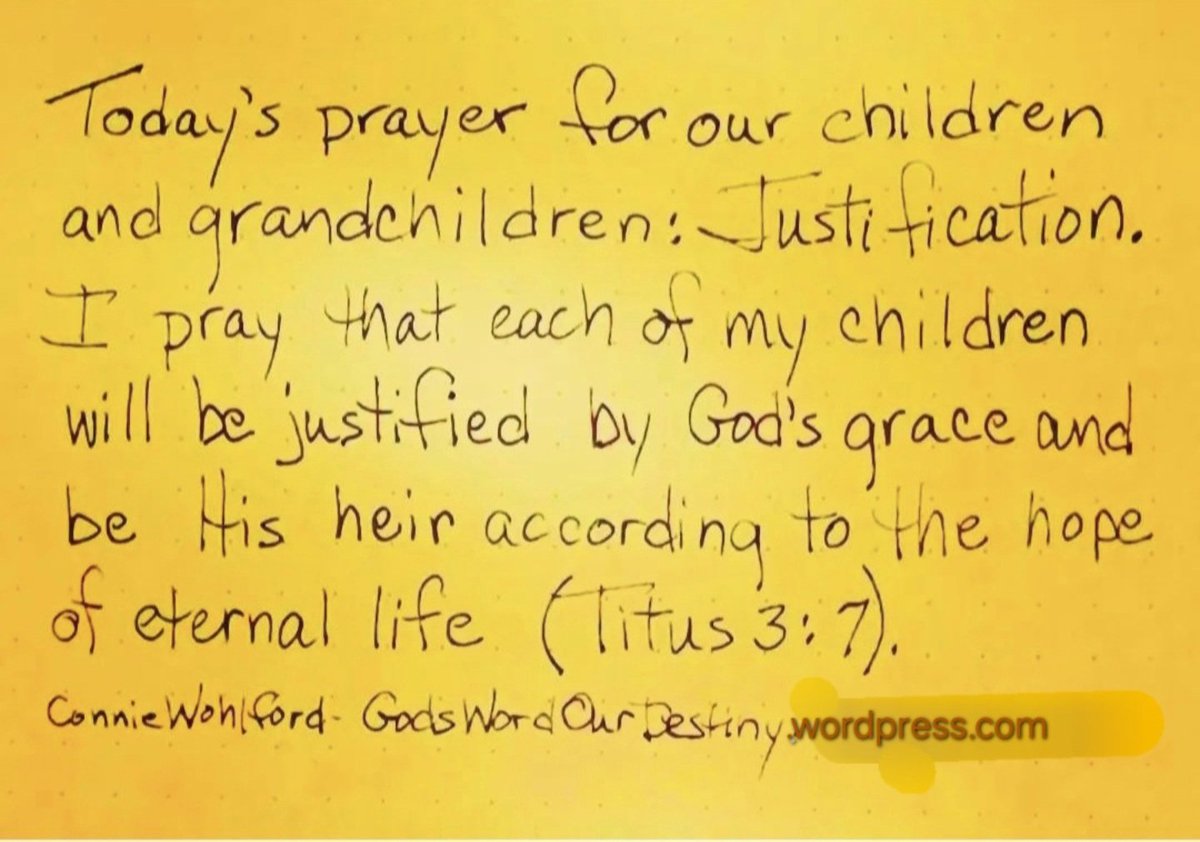 Today's prayer for our children
and grandchildren: Justification.
I pray that each of my children
will be justified by God's grace and
be His heir according to the hope
of eternal life (Titus 3:7).
Connie Wohlford - GodsWordOurDestiny.wordpress.com